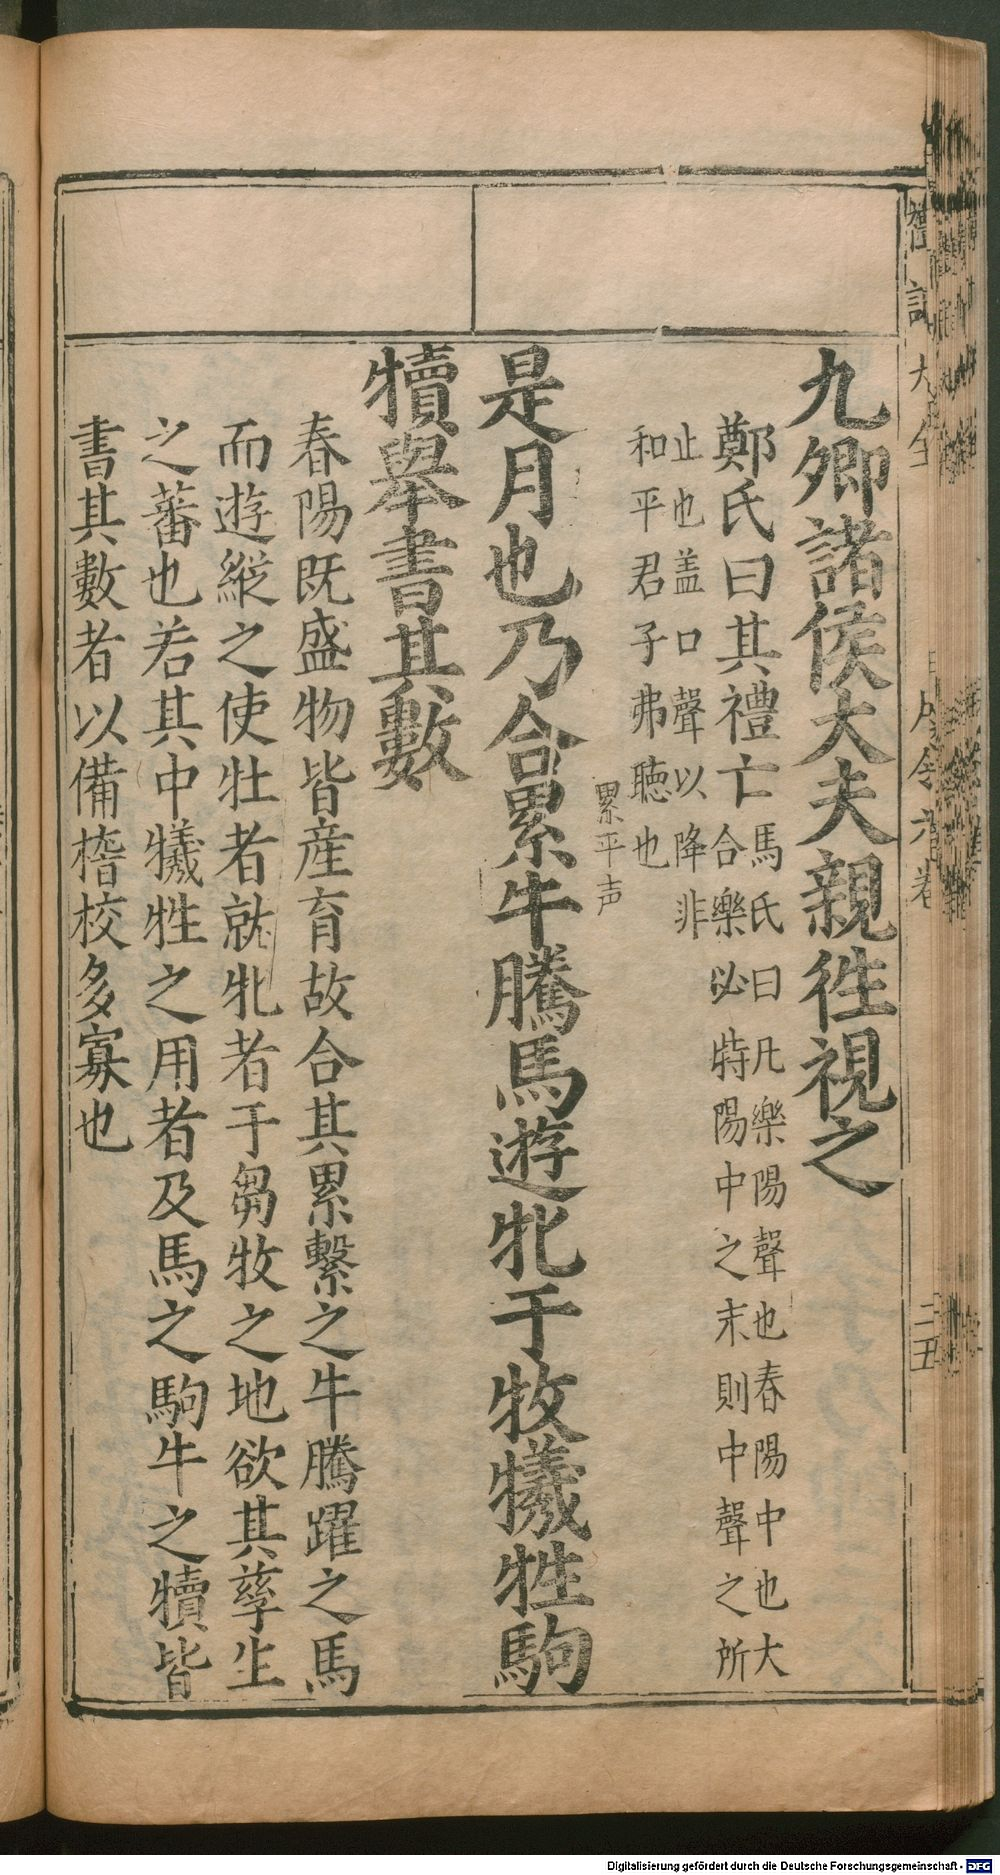 九卿諸侯大夫親徃視之
鄭氏曰其禮亡
馬氏曰凡樂陽聲也春陽中也大
合樂必特陽中之末則中聲之所
止也盖口聲以降非
和平君子弗聴也
累平声
是月也乃合累牛騰馬遊牝于牧犧牲駒
犢舉書其數
春陽既盛物皆産育故合其累繫之牛騰躍之馬
而遊縱之使牡者就牝者于芻牧之地欲其孳生
之蕃也若其中犧牲之用者及馬之駒牛之犢皆
書其數者以備稽校多寡也
禮記大全
月令六卷
二五
Digitalisierung gefördert durch die Deutsche Forschungsgemeinschaft - DFG